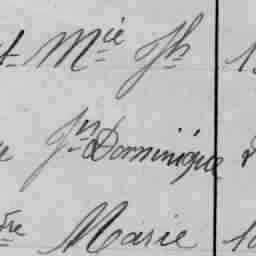 t Mie Jh 1
e Jn Dominique
re Marie 10